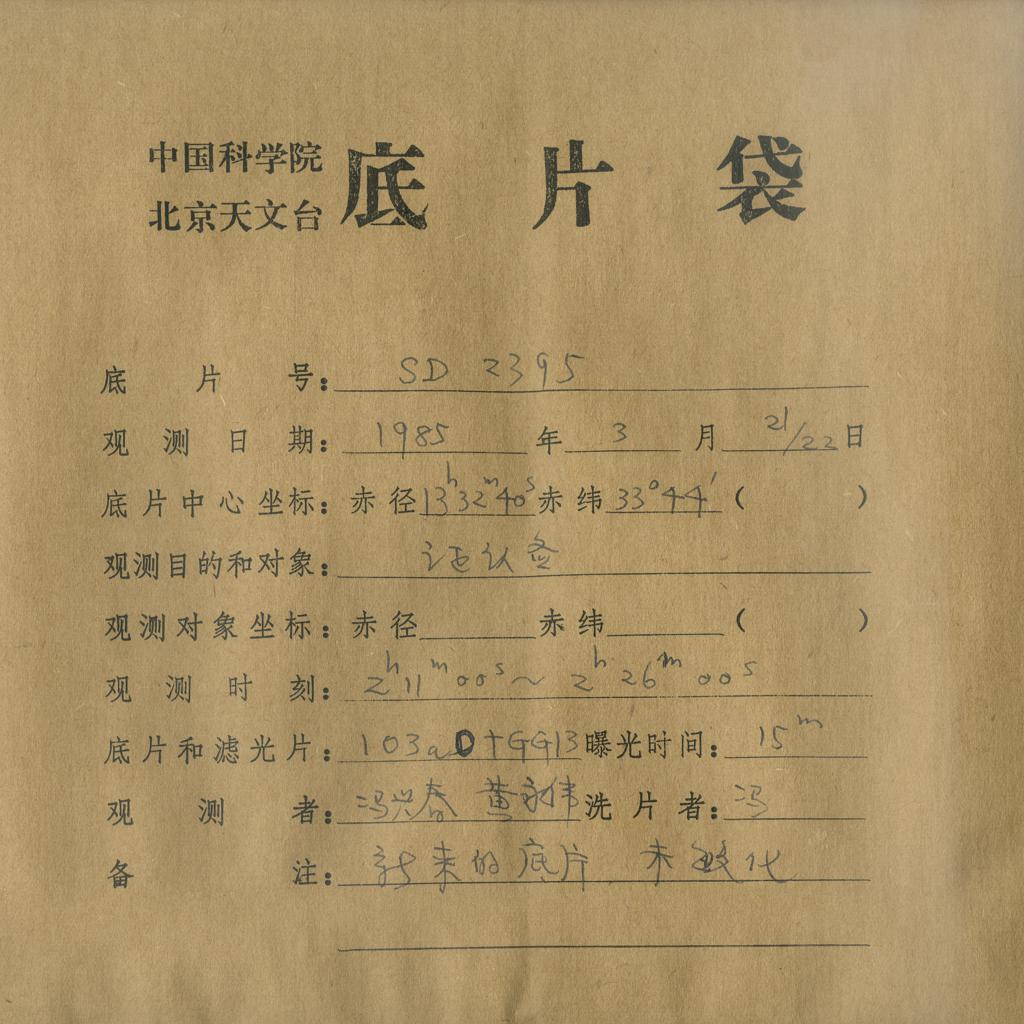 中国科学院
北京天文台
底片袋
底片号：SD 2395
观测日期：1985年3月21/22日
底片中心坐标：赤径13h32m40s赤纬33°44′（ ）
观测目的和对象：证认
观测对象坐标：赤径 赤纬 （ ）
观测时刻：2h11m00s～2h26m00s
底片和滤光片：103aD+GG13曝光时间：15m
观测者：冯兴春 黄永伟洗片者：冯
备注：新来的底片，未敏化